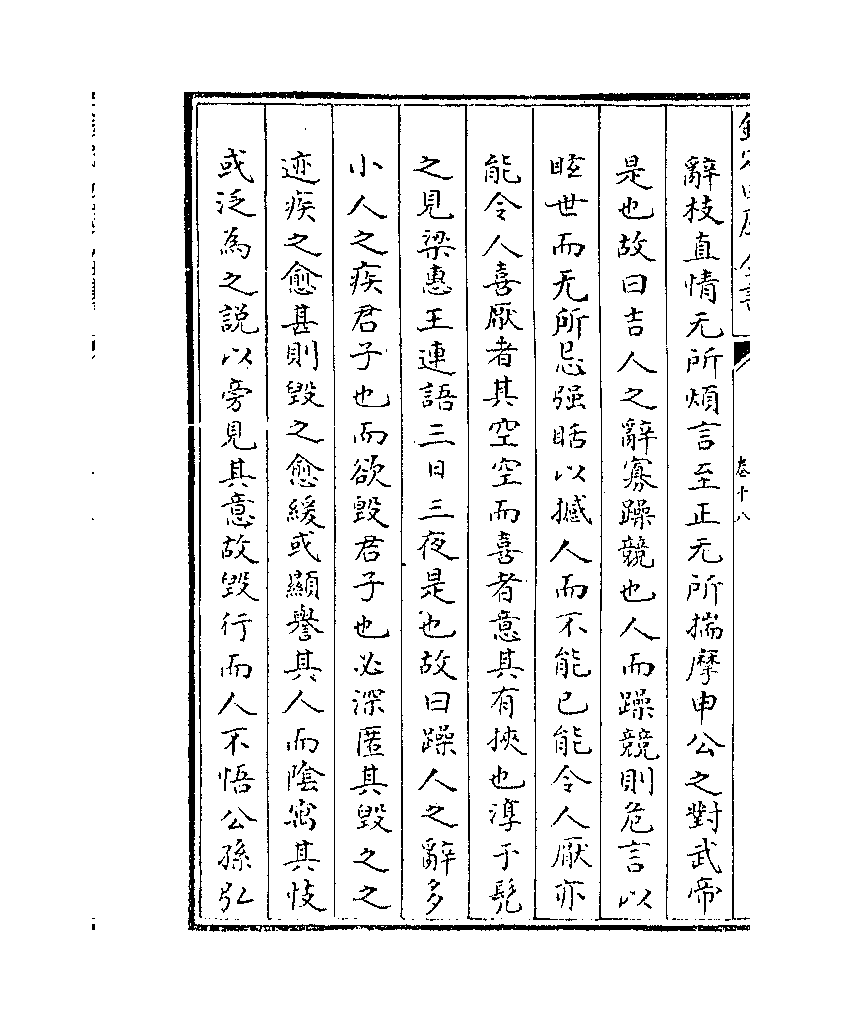 辭枝直情无所煩言至正无所揣摩申公之對武帝
是也故曰吉人之辭寡躁競也人而躁競則危言以
眩世而无所忌强聒以撼人而不能已能令人厭亦
能令人喜厭者其空空而喜者意其有挾也淳于髡
之見梁惠王連語三日三夜是也故曰躁人之辭多
小人之疾君子也而欲毁君子也必深匿其毁之之
迹疾之愈甚則毁之愈緩或顯譽其人而陰寓其忮
或泛為之説以旁見其意故毁行而人不悟公孫弘
卷十八